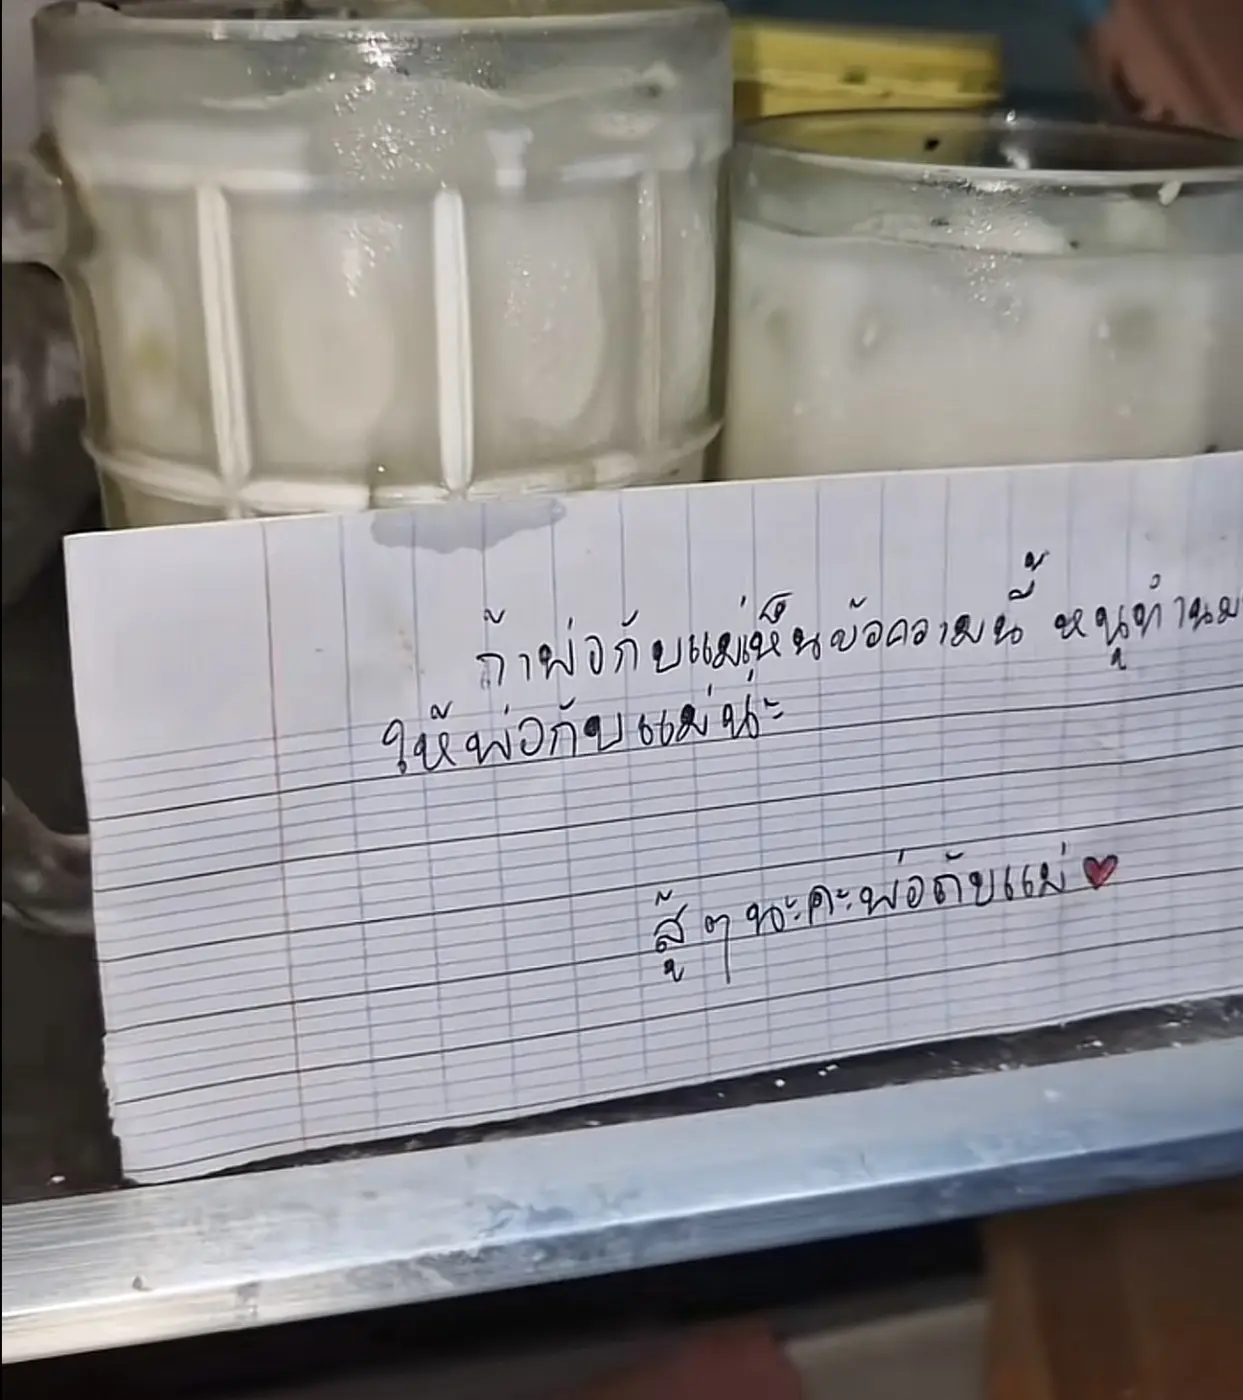 ถ้าพ่อกับแม่เห็นข้อความนี้ หนูทำนม
ให้พ่อกับแม่น่ะ
สู้ ๆ นะคะพ่อกับแม่ ❤